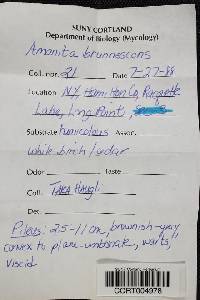 SUNY CORTLAND
Department of Biology (Mycology)
Amanita brunnescens
Coll. no. 21 Date 7-27-88
Location N.Y. Hamilton Co, Raquette
Lake, Long Point,
Substrate humicolous Assoc.
white birch/cedar
Odor Taste
Coll. TARA Haugli
Det.
Pileus: 2.5-11 cm, brownish-gray
convex to plane-umbonate, "warts,"
viscid
CORT004978